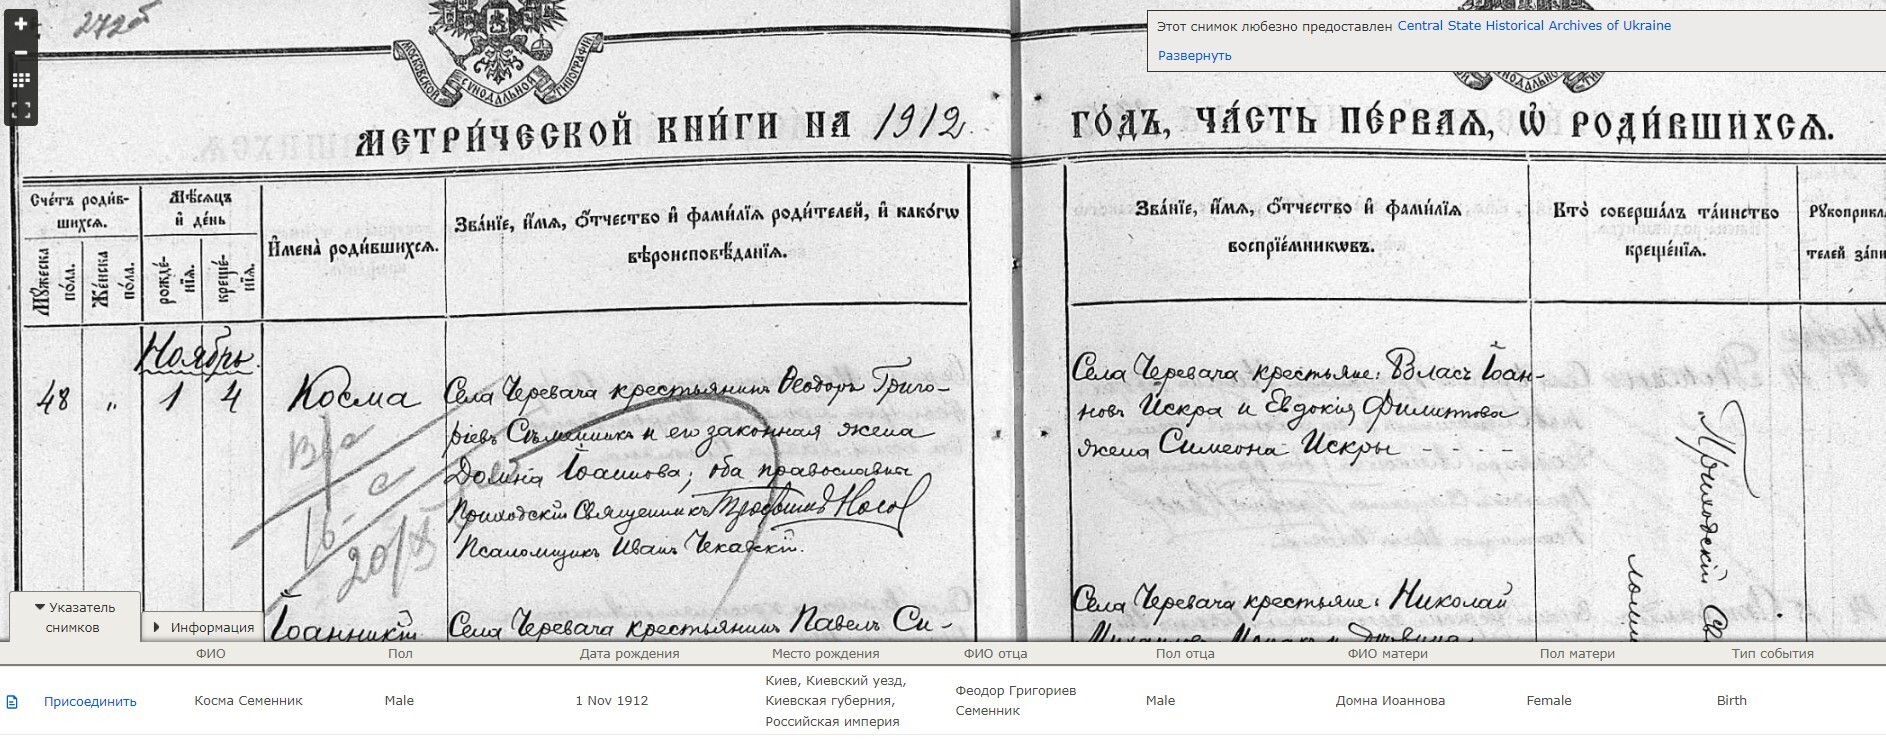 272б
МОСКОВСКОЙ СѴНОДАЛЬНОЙ ТИПОГРАФІИ
Этот снимок любезно предоставлен Central State Historical Archives of Ukraine
Развернуть
МЕТРИ́ЧЕСКОЙ КНИ́ГИ НА 1912
ГО́ДЪ, ЧА́СТЬ ПЕ́РВАЯ, Ѡ҆ РОДИ́ВШИХСЯ.
Сче́тъ роди́в-
шихся.
Мѣ́сяцъ
и҆ де́нь
Мꙋ́жеска
по́ла.
Же́нска
по́ла.
рожде́-
нїя.
креще́-
нїя.
И҆мена̀ роди́вшихся.
Зва́нїе, и҆́мя, ѻ҆́тчество и҆ фами́лїя роди́телей, и҆ како́гѡ
вѣроисповѣ́данїя.
Зва́нїе, и҆́мя, ѻ҆́тчество и҆ фами́лїя
воспрїе́мникѡвъ.
Кто̀ соверша́лъ та́инство
креще́нїя.
Рꙋкоприкл
телей за́пи
Ноябрь
48 „ 1 4
Косма
Села Черевача крестьянинъ Ѳеодоръ Григо-
ріевъ Сѣменникъ и его законная жена
Домна Іоаннова; оба православны
Приходскій Священникъ
Псаломщикъ Иванъ
Села Черевача крестьяне: Власъ Іоан-
новъ Искра и Евдокія Филиппова
жена Симеона Искры - - - -
Приходскій Св
20/
Іоанникій
Села Черевача крестьянинъ Павелъ Си-
Села Черевача крестьяне: Николай
Указатель
снимков
Информация
ФИО Пол Дата рождения Место рождения ФИО отца Пол отца ФИО матери Пол матери Тип события
Присоединить Косма Семенник Male 1 Nov 1912
Киев, Киевский уезд,
Киевская губерния,
Российская империя
Феодор Григориев
Семенник
Male Домна Иоаннова Female Birth